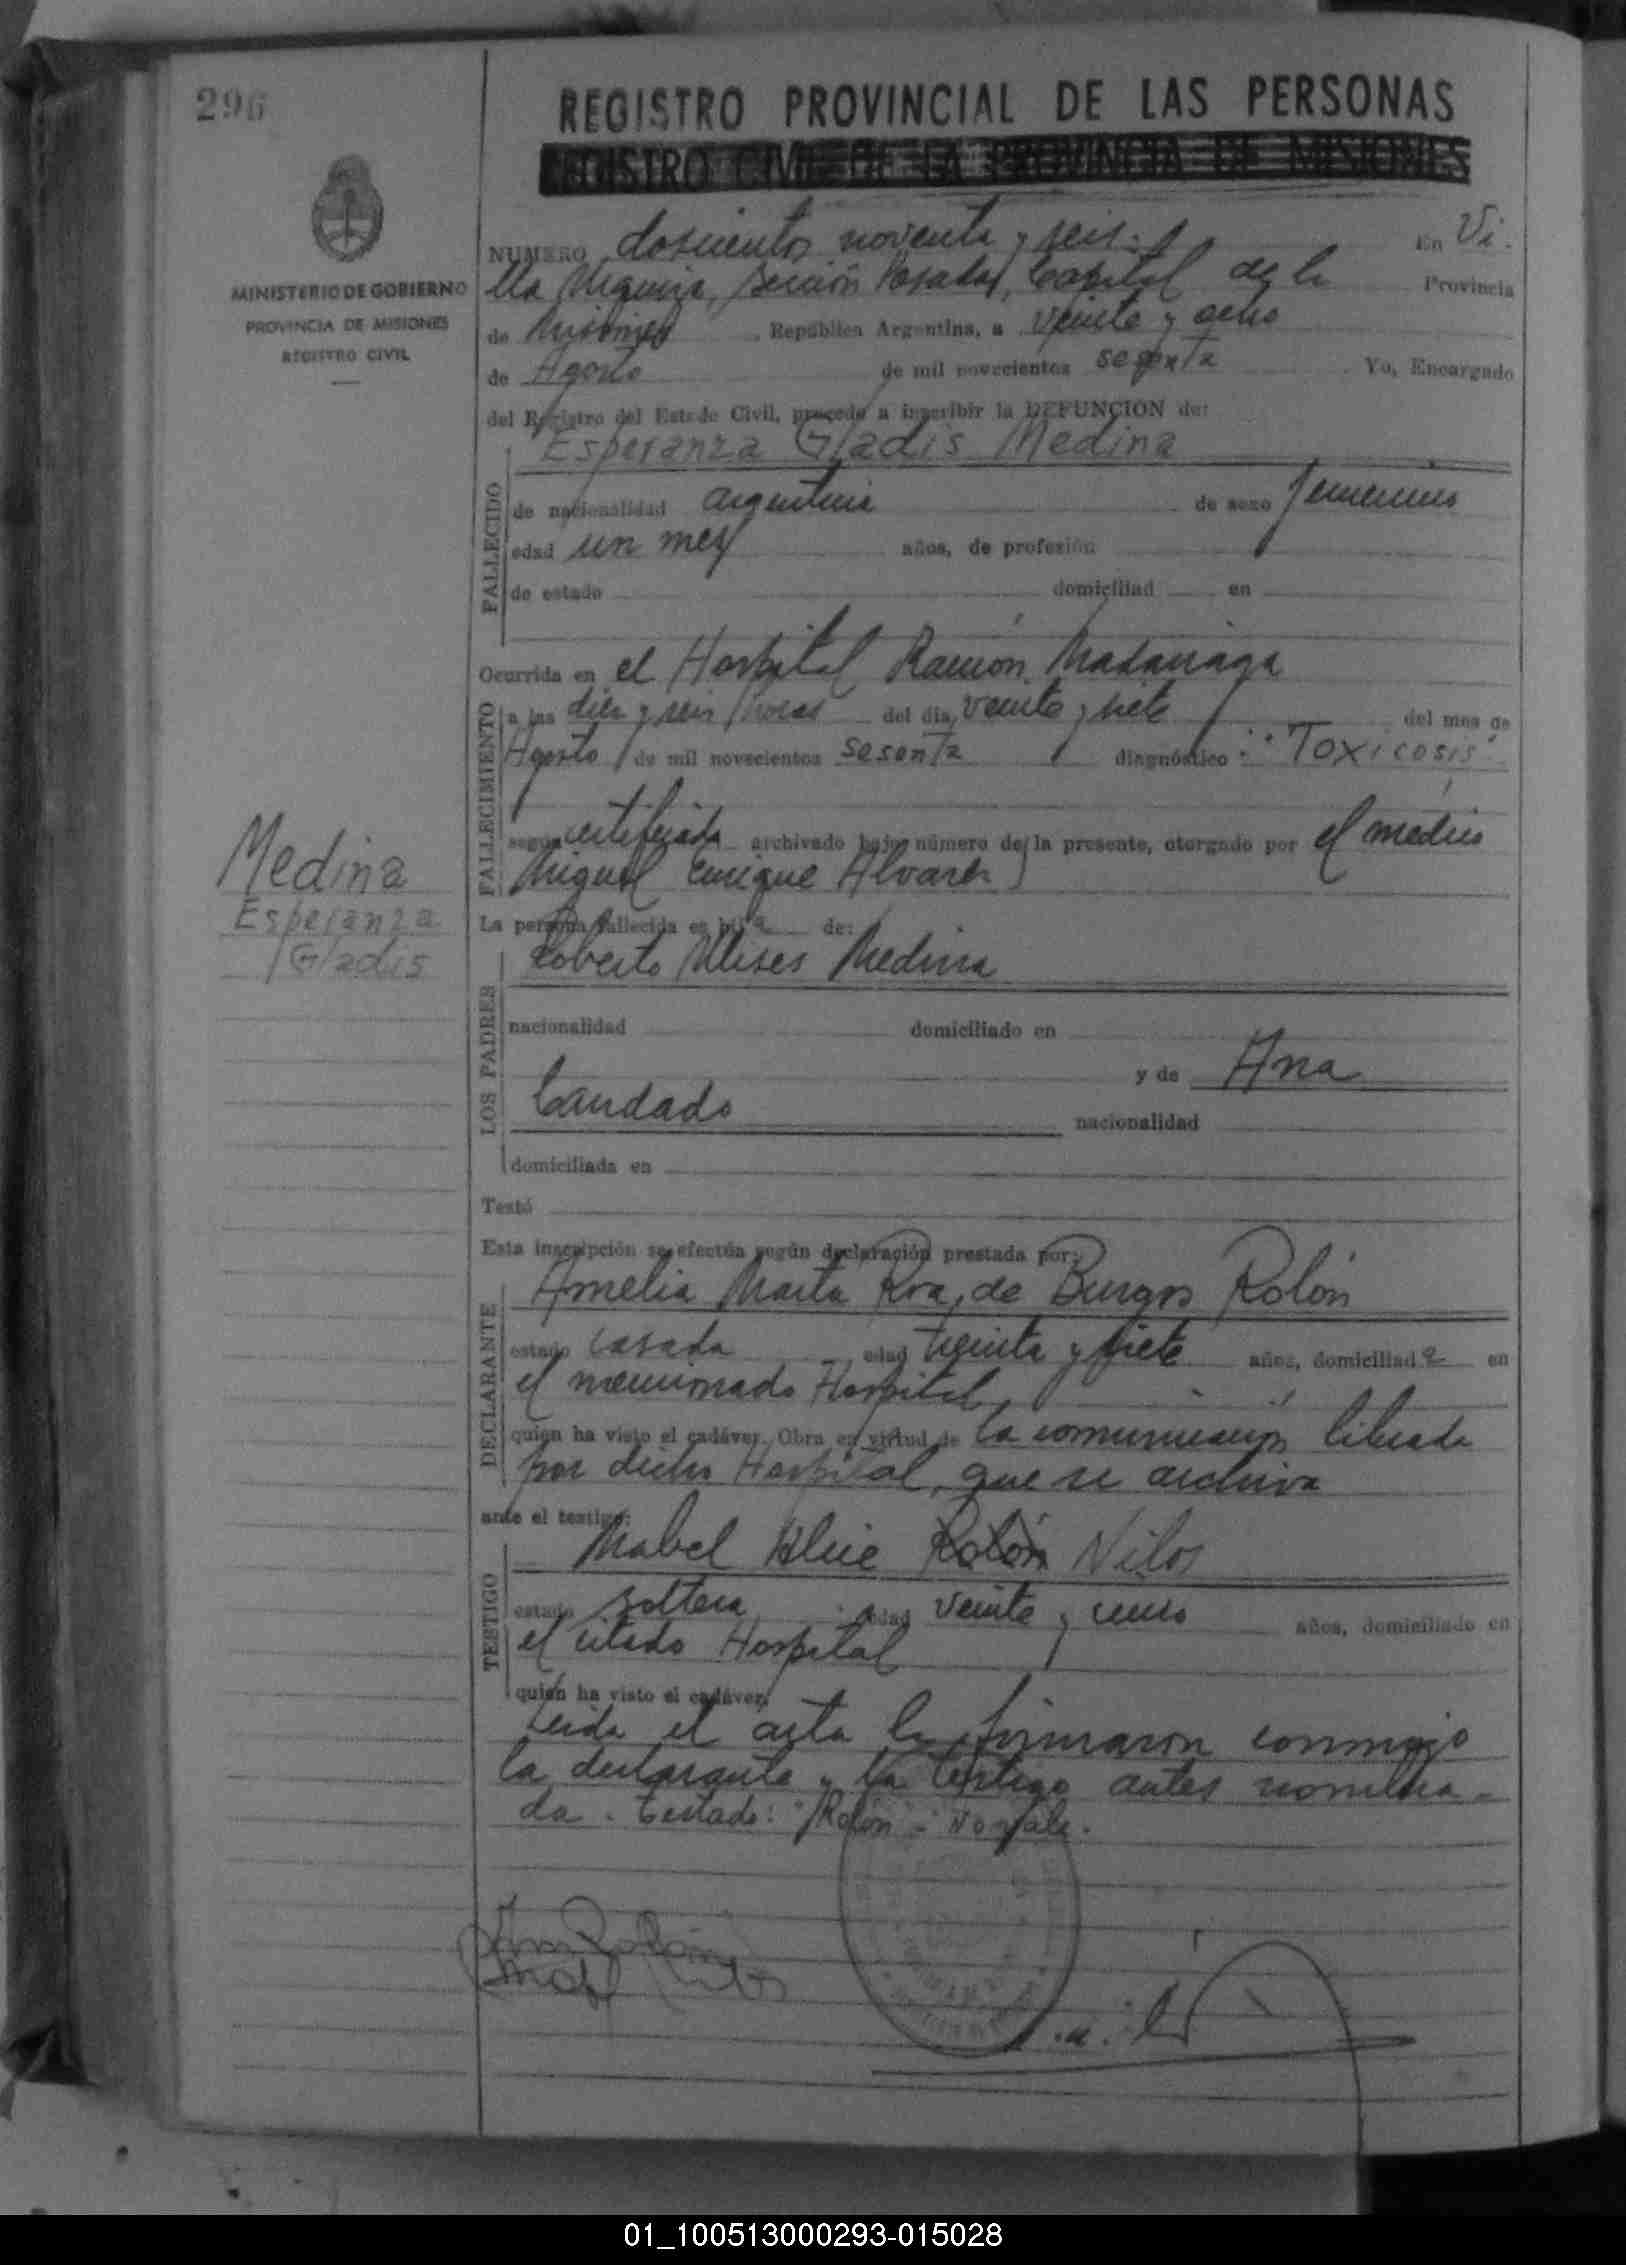 296
REGISTRO PROVINCIAL DE LAS PERSONAS
REGISTRO CIVIL DE LA PROVINCIA DE MISIONES
MINISTERIO DE GOBIERNO
PROVINCIA DE MISIONES
REGISTRO CIVIL
NUMERO doscientos noventa y seis. En Vi-
lla Urquiza, Sección Posadas, Capital de la Provincia
de Misiones, República Argentina, a veinte y ocho
de Agosto de mil novecientos sesenta. Yo, Encargado
del Registro del Estado Civil, procedo a inscribir la DEFUNCION de:
Esperanza Gladis Medina
FALLECIDO
de nacionalidad argentina de sexo femenino
edad un mes años, de profesión
de estado domiciliad en
Ocurrida en el Hospital Ramón Madariaga
FALLECIMIENTO
a las diez y seis horas del día veinte y siete del mes de
Agosto de mil novecientos sesenta diagnóstico: "Toxicosis".
según certificado archivado bajo número de la presente, otorgado por el médico
Miguel Enrique Alvarez
Medina
Esperanza
Gladis
La persona fallecida es hija de:
LOS PADRES
Roberto Ulises Medina
nacionalidad domiciliado en
y de Ana
Candado nacionalidad
domiciliada en
Testó
Esta inscripción se efectúa según declaración prestada por:
DECLARANTE
Amelia Marta Roa de Burgos Rolón
estado casada edad treinta y siete años, domiciliada en
el mencionado Hospital
quien ha visto el cadáver. Obra en virtud de la comunicación librada
por dicho Hospital, que se archiva
ante el testigo:
TESTIGO
Mabel Rolón Nilos
estado soltera edad veinte y cinco años, domiciliado en
el citado Hospital
quien ha visto el cadáver.
Leida el acta la firmaron conmigo
la declarante y la testigo antes nombra-
da. Testado: "Rolón" - No vale.